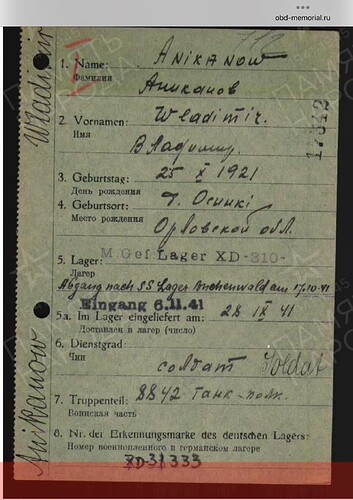 obd-memorial.ru
1. Name: ANIKANOW
Фамилия Аниканов
2. Vornamen: Wladimir.
Имя Владимир.
17812
3. Geburtstag: 25 X 1921
День рождения
4. Geburtsort: г. Осинкі
Место рождения Орловской обл.
5. Lager: M.Gef Lager XD-310-
Лагерь
Abgang nach SS Lager Buchenwald am 17.10.41
Eingang 6.11.41
5a. Im Lager eingeliefert am: 28 IX 41
Доставлен в лагерь (число)
6. Dienstgrad:
Чин солдат Soldat
7. Truppenteil: 8842 танк-полк.
Воинская часть
8. Nr. der Erkennungsmarke des deutschen Lagers:
Номер военнопленного в германском лагере
XD 31333
Wladimir
Anikanow